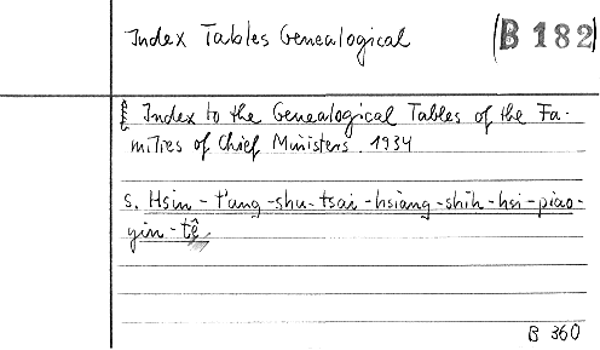 Index Tables Genealogical
(B 182)
Index to the Genealogical Tables of the Fa-
milies of Chief Ministers. 1934
s. Hsin-t'ang-shu-tsai-hsiang-shih-hsi-piao-
yin-tê
B 360